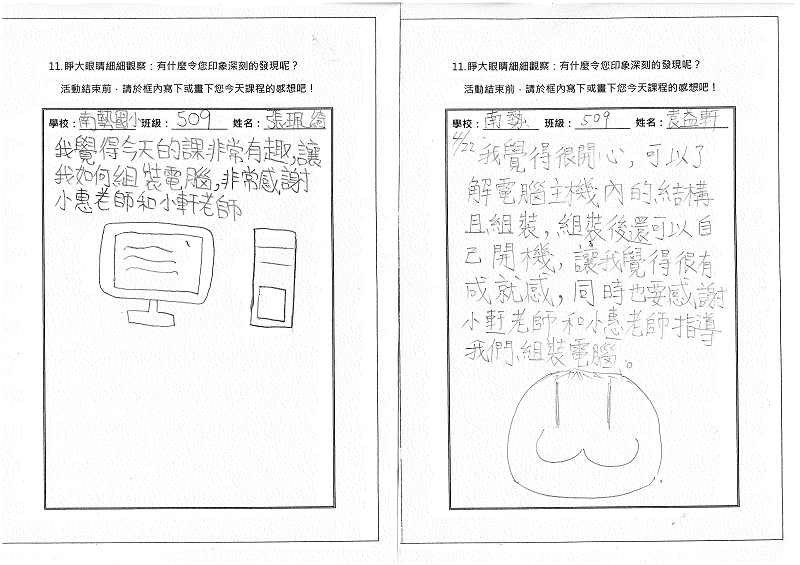 11.睜大眼睛細細觀察：有什麼令您印象深刻的發現呢？
活動結束前，請於框內寫下或畫下您今天課程的感想吧！
學校：南勢國小 班級：509 姓名：張珮綺
我覺得今天的課非常有趣,讓
我如何組裝電腦,非常感謝
小惠老師和小軒老師
11.睜大眼睛細細觀察：有什麼令您印象深刻的發現呢？
活動結束前，請於框內寫下或畫下您今天課程的感想吧！
學校：南勢 班級：509 姓名：袁益軒
4/22
我覺得很開心,可以了
解電腦主機內的結構
且組裝,組裝後還可以自
己開機,讓我覺得很有
成就感,同時也要感謝
小軒老師和小惠老師指導
我們組裝電腦。